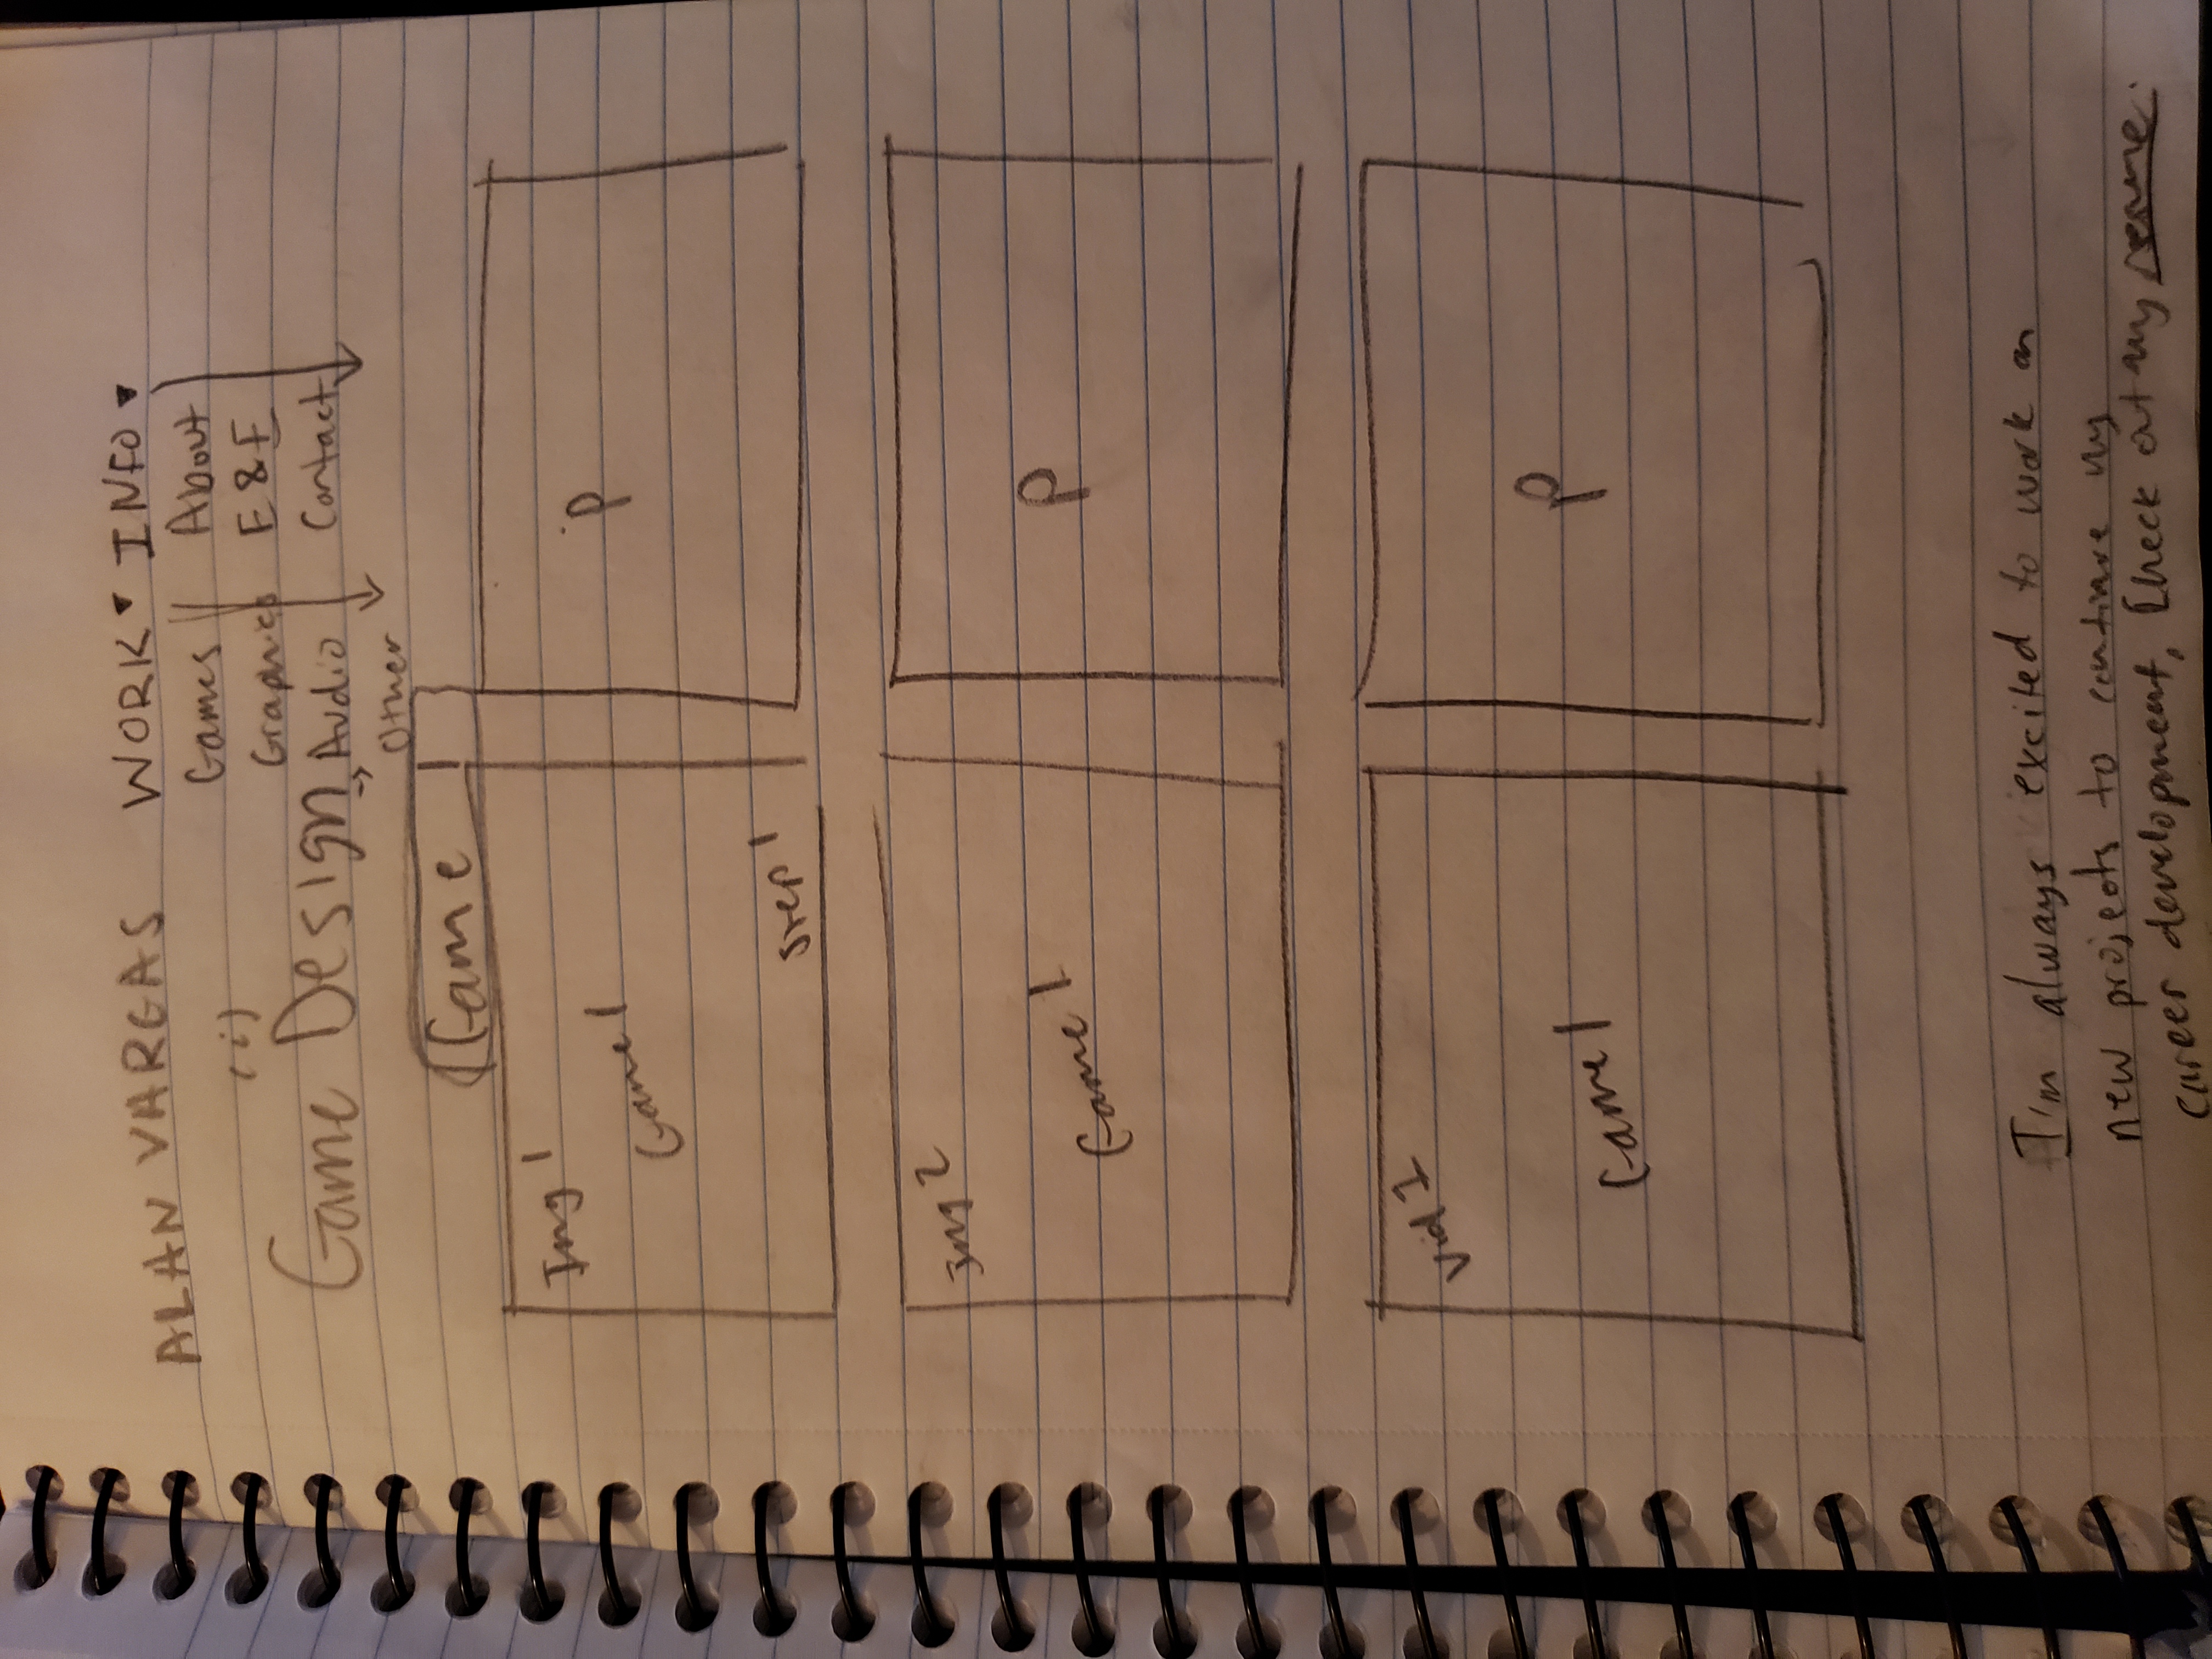 ALAN VARGAS WORK ▾ INFO ▾
Games About
Graphics E & E
Audio Contact
Other
(i)
Game Design →
Game
Img 1
Game 1
Step 1
P
Img 2
Game 1
P
Vid 1
Game 1
P
I'm always excited to work on
new projects to continue my
career development, Check out my resume.